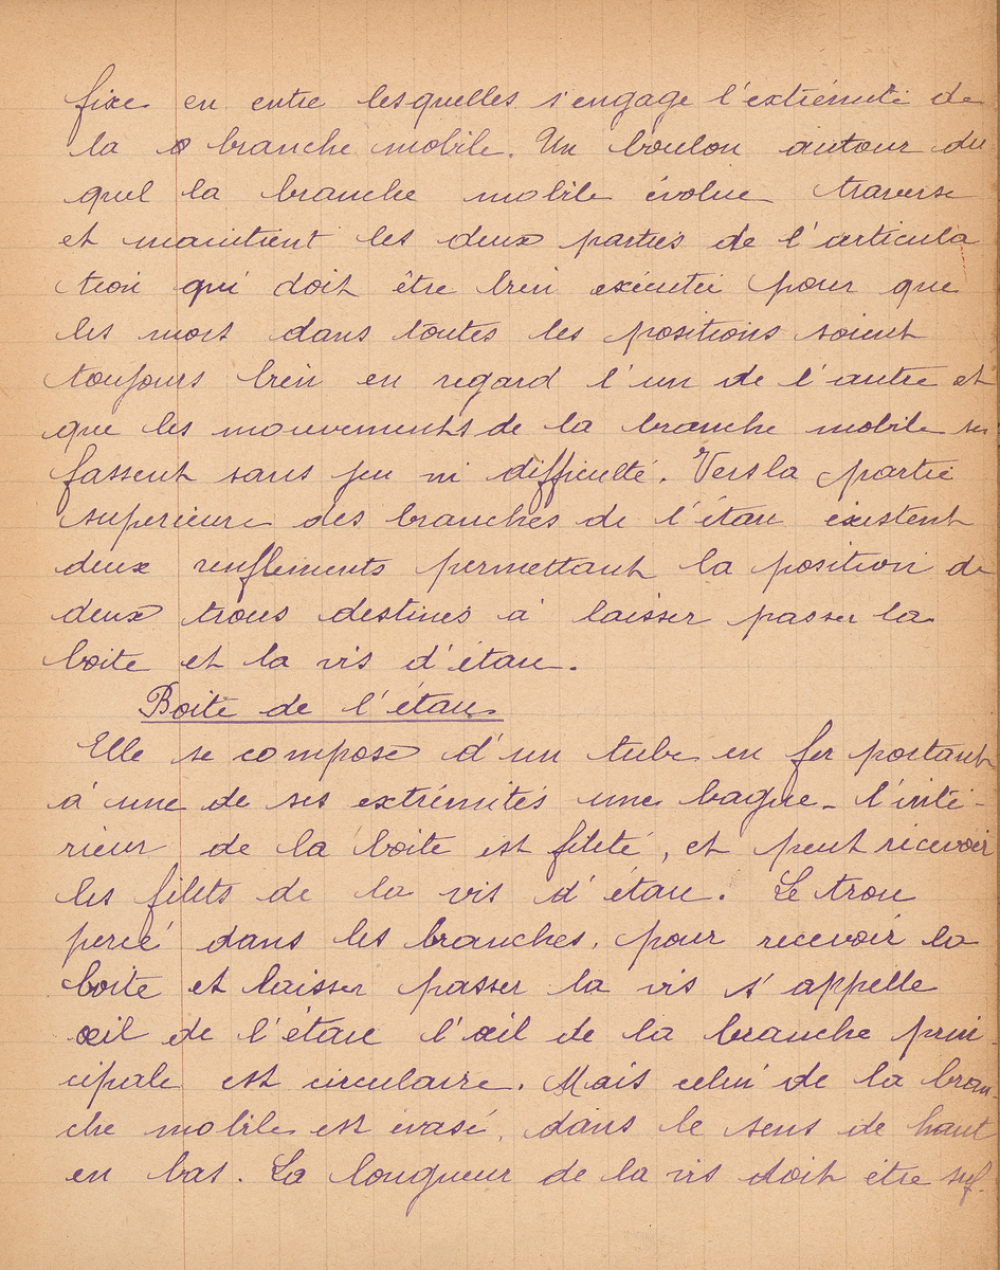 fixe en entre lesquelles s'engage l'extrémité de
la branche mobile. Un boulon autour du
quel la branche mobile évolue traverse
et maintient les deux parties de l'articula
tion qui doit être bien exécutée pour que
les mors dans toutes les positions soient
toujours bien en regard l'un de l'autre et
que les mouvements de la branche mobile se
fassent sans jeu ni difficulté. Vers la partie
superieure des branches de l'étau existent
deux renflements permettant la position de
deux trous destinés à laisser passer la
boite et la vis d'étau.
Boite de l'étau
Elle se compose d'un tube en fer portant
à une de ses extrémités une bague - l'inté-
rieur de la boite est fileté, et peut recevoir
les filets de la vis d'étau. Le trou
percé dans les branches, pour recevoir la
boite et laisser passer la vis s'appelle
œil de l'étau l'œil de la branche prin-
cipale est circulaire. Mais celui de la bran-
che mobile est évasé, dans le sens de haut
en bas. La longueur de la vis doit être suf-